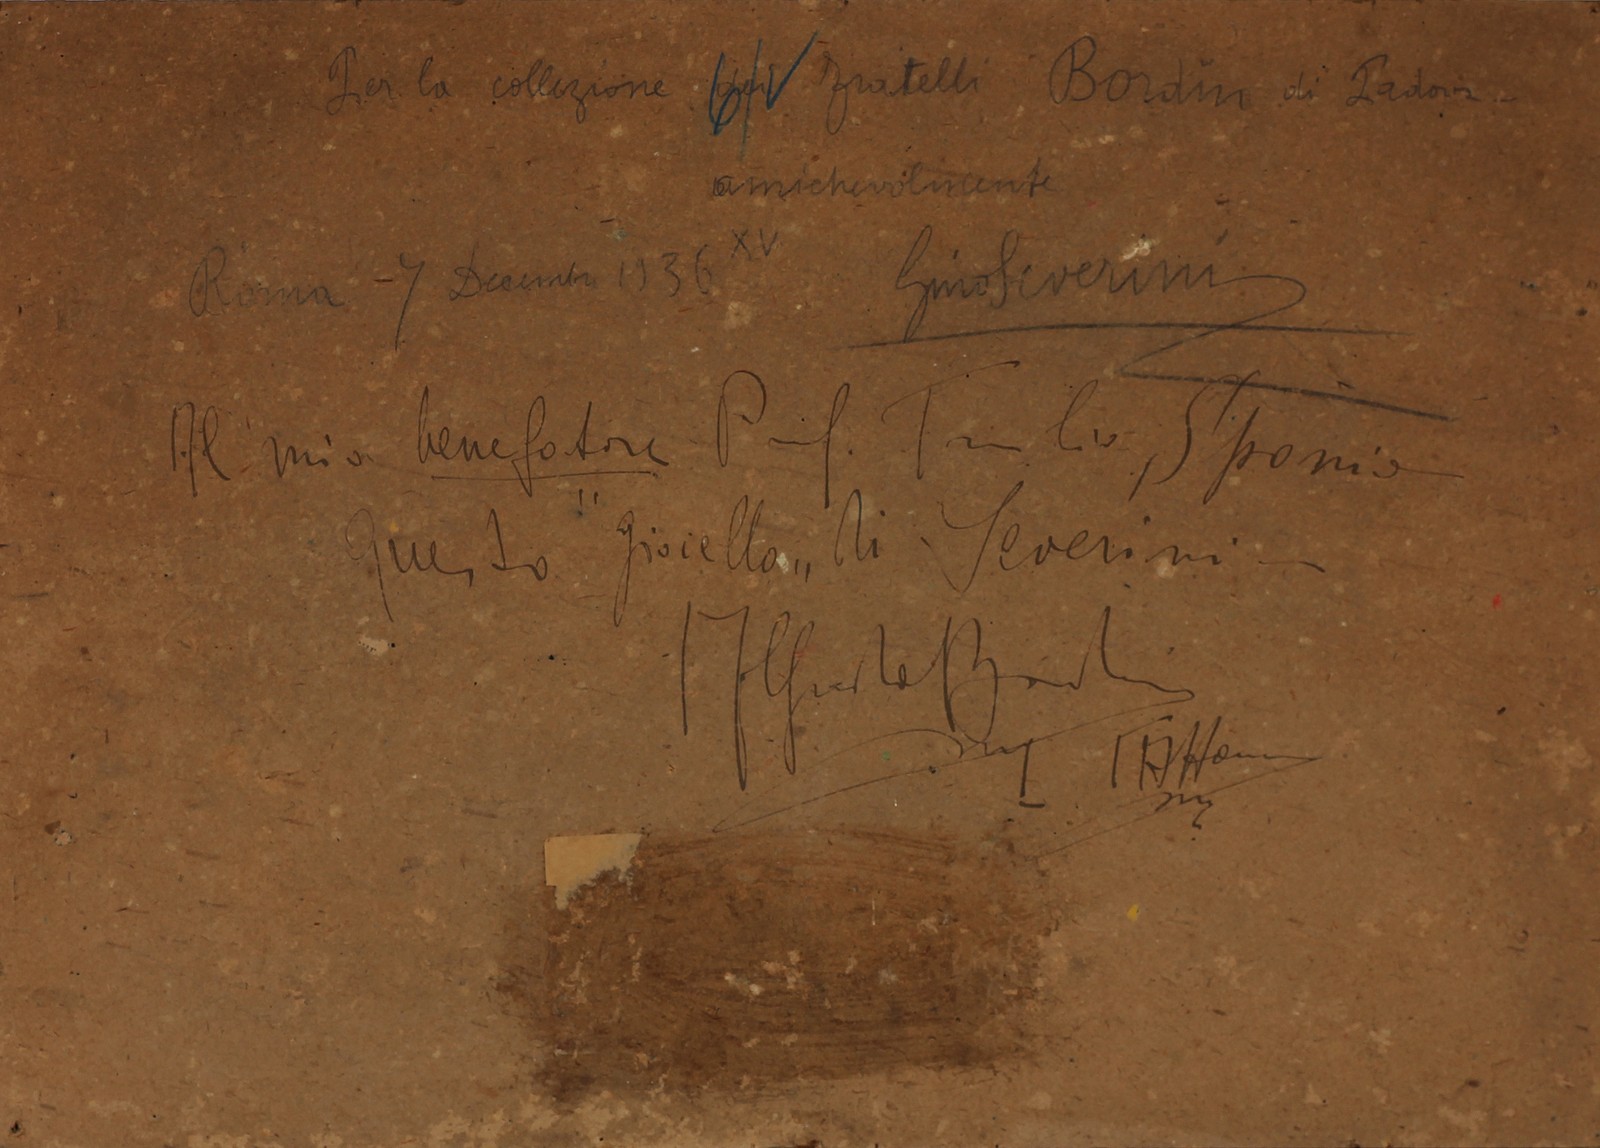 Per la collezione dei fratelli Bordin di Padova -
6/V
amichevolmente
Roma - 7 Decembre 1936 XV
Gino Severini
Al mio benefatore Prof. Tullio Sponia
Questo "gioiello„ di Severini -
Alfredo Bordin